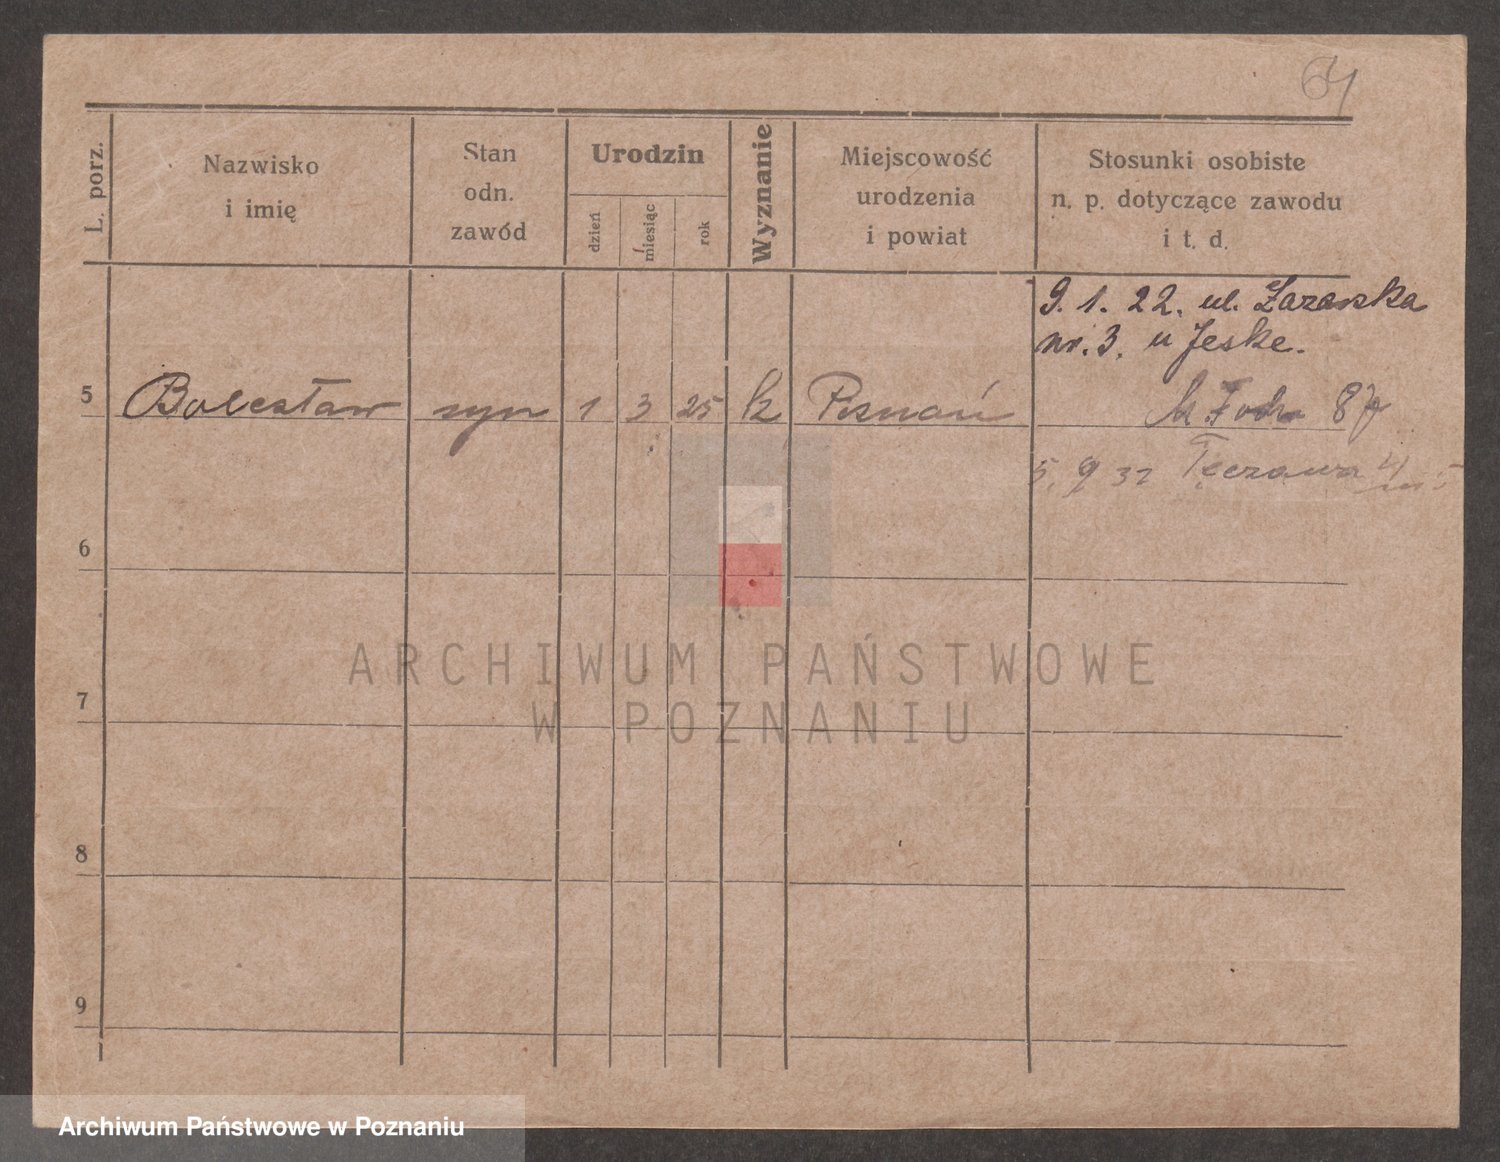 64
L. porz.
Nazwisko
i imię
Stan
odn.
zawód
Urodzin
dzień
miesiąc
rok
Wyznanie
Miejscowość
urodzenia
i powiat
Stosunki osobiste
n. p. dotyczące zawodu
i t. d.
9. 1. 22. ul. Łazarska
nr. 3. u Jeske.
5 Bolesław syn 1 3 25 k Poznań M. Focha 87
5. 9 32 Tęczowa
6
7
8
9
ARCHIWUM PAŃSTWOWE
W POZNANIU
Archiwum Państwowe w Poznaniu